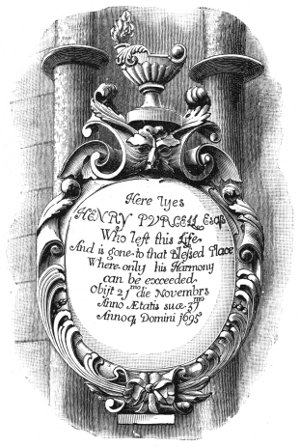 Here lyes
HENRY PVRCELL Esqr.
Who left this Life,
And is gone to that Blessed Place
Where only his Harmony
can be exceeded.
Obijt 21mo die Novembrs
Anno Ætatis suæ 37mo
Annoq Domini 1695